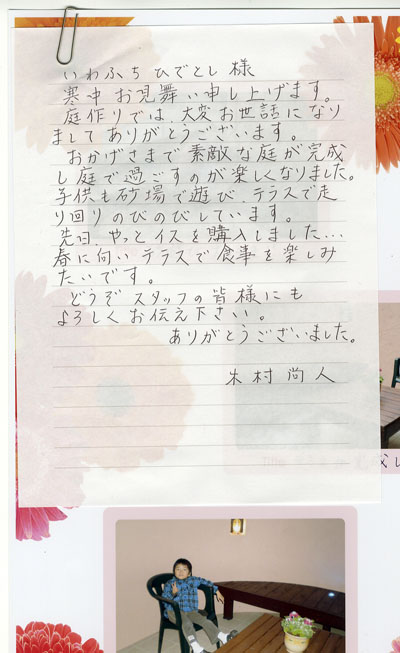 いわふち ひでとし 様
寒中お見舞い申し上げます。
庭作りでは、大変お世話になり
ましてありがとうございます。
おかげさまで素敵な庭が完成
し庭で過ごすのが楽しくなりました。
子供も砂場で遊び、テラスで走
り回りのびのびしています。
先日 やっとイスを購入しました…
春に向いテラスで食事を楽しみ
たいです。
どうぞ スタッフの皆様にも
よろしくお伝え下さい。
ありがとうございました。
木村 尚人